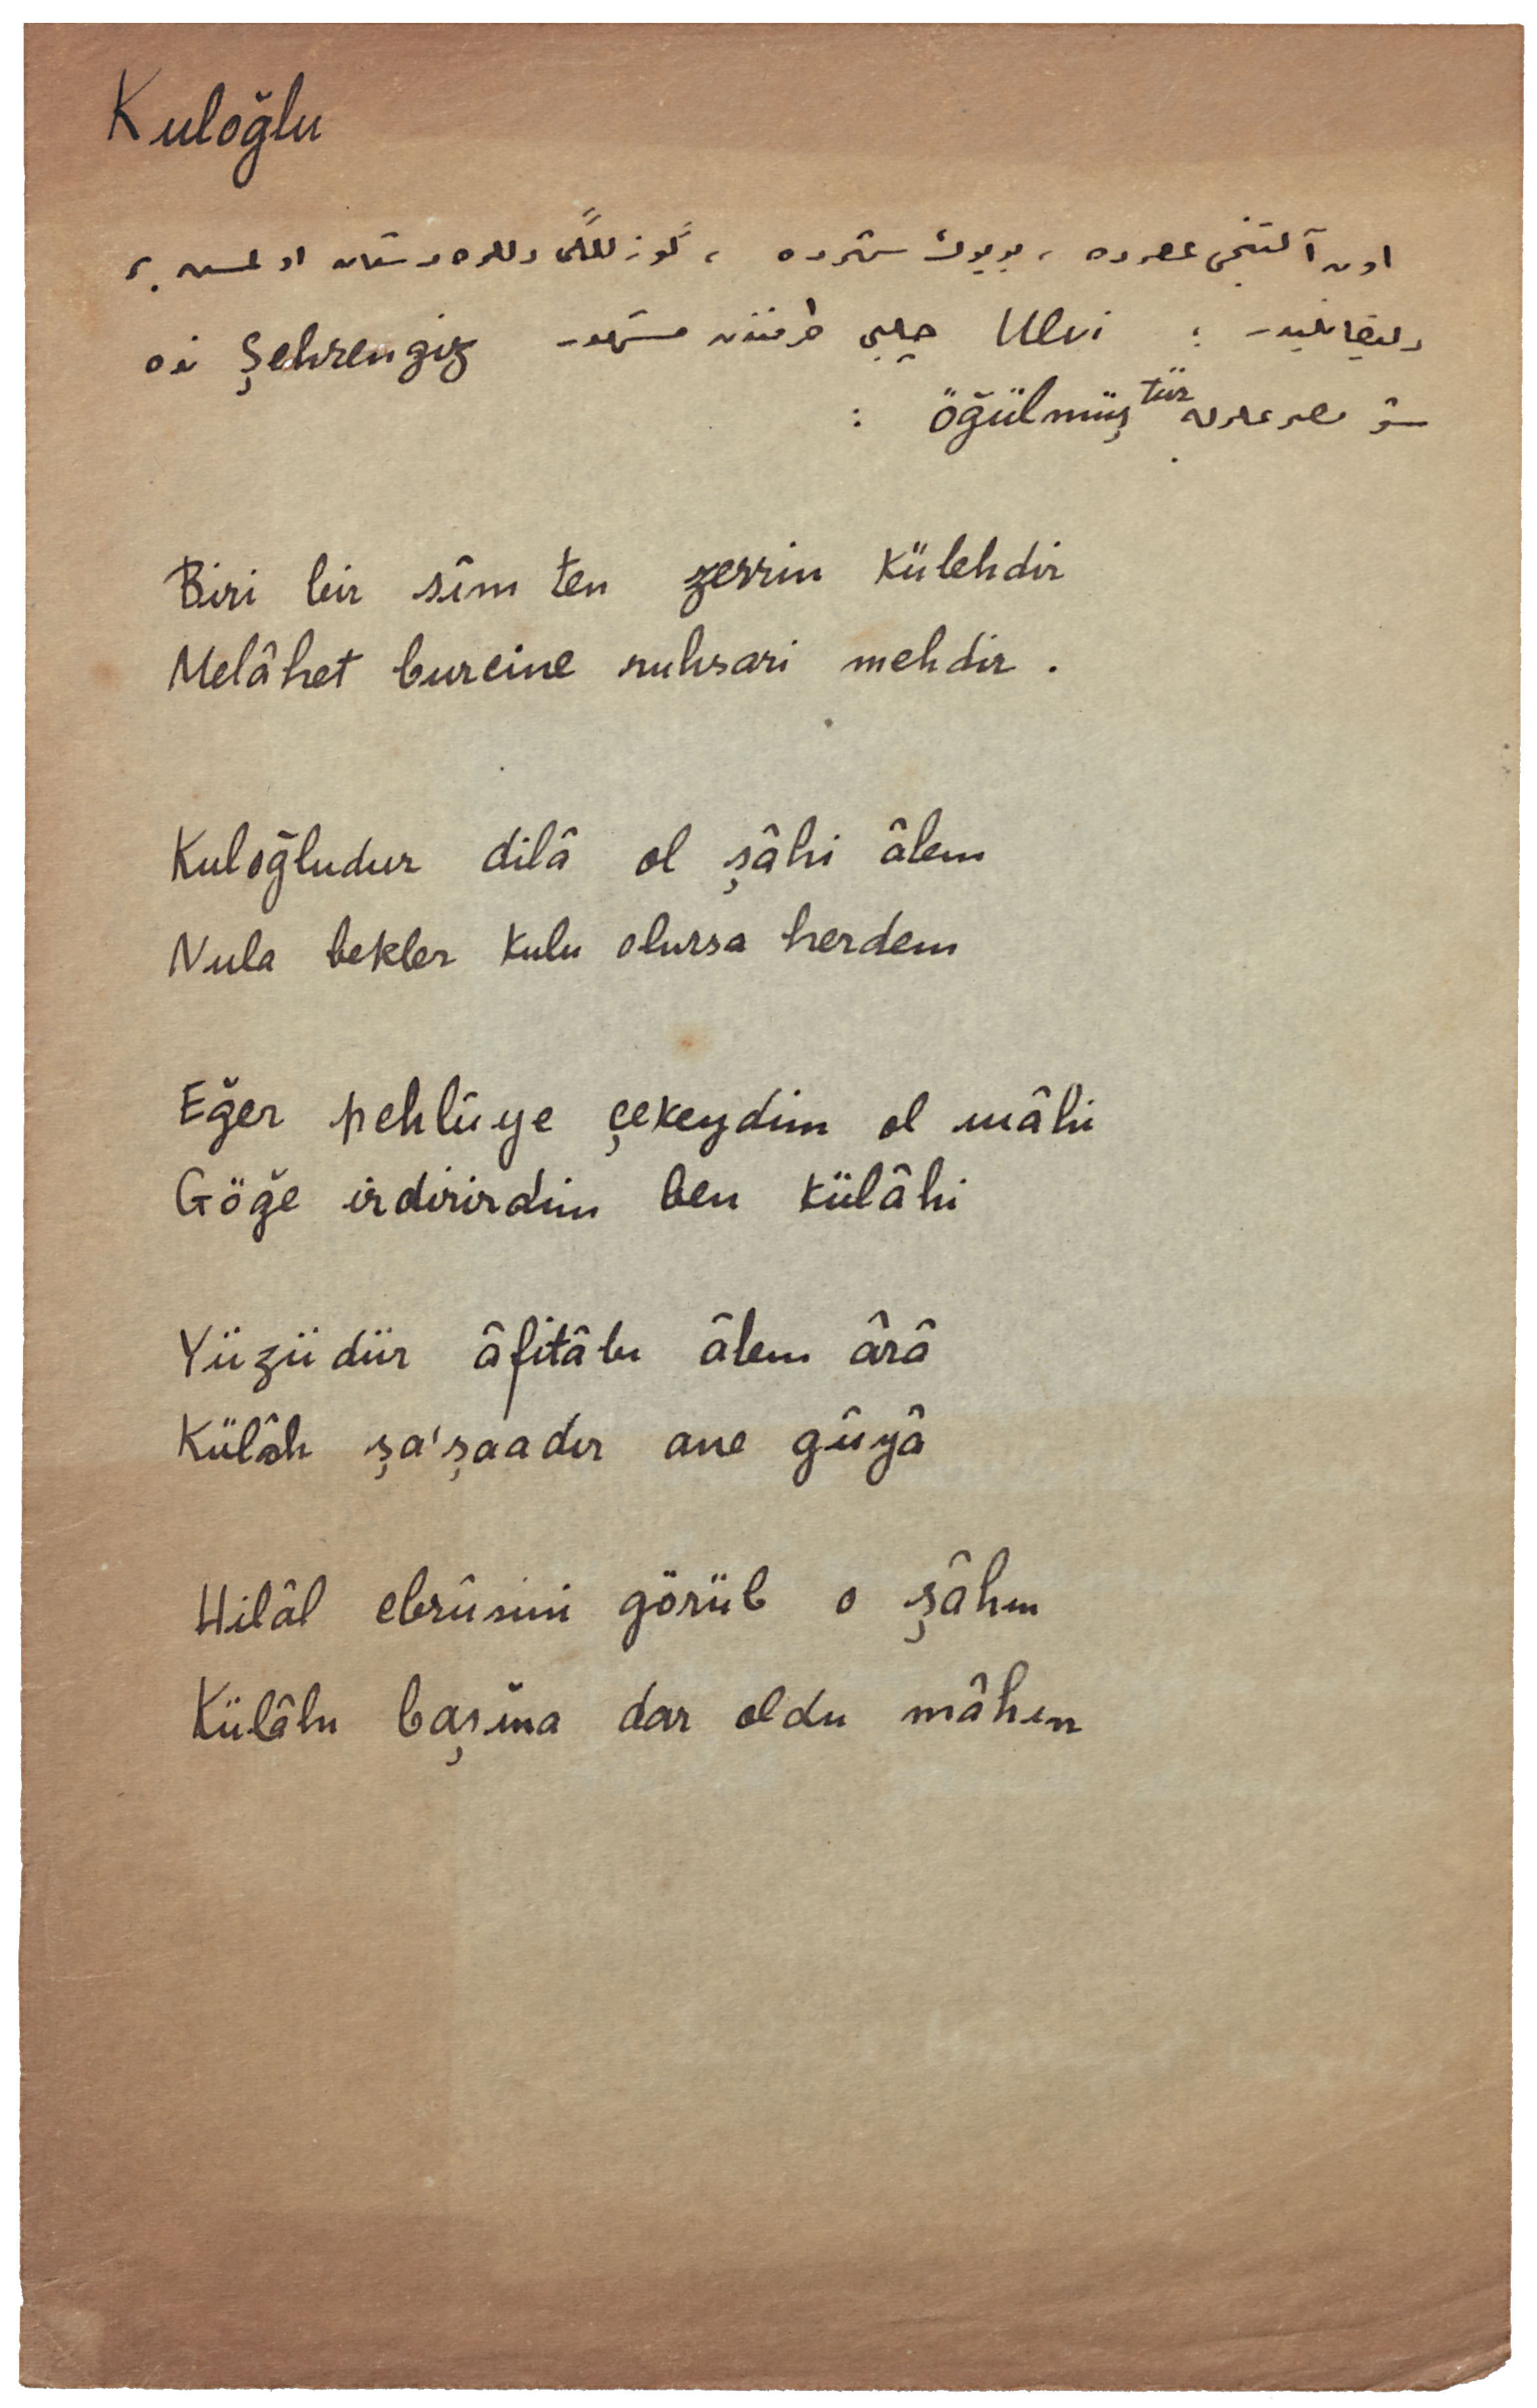 Kuloğlu
اون آلتنجی عصرده ، بویوك شهرده ، گوزللگی دللره دستان اولمش بر
دلیقانلیدر ؛ Ulvi چلبی طرفندن مشهور Şehrengiz نده
شو مصرعلرله öğülmüştür :
Biri bir sîm ten zerrin külehdir
Melâhet burcine ruhsari mehdir .
Kuloğludur dilâ ol şâhi âlem
Nula bekler kulu olursa herdem
Eğer pehlûye çekeydim ol mâhi
Göğe irdirirdim ben külâhi
Yüzüdür âfitâbı âlem ârâ
Külâh şa'şaadır ane gûyâ
Hilâl ebrûsini görüb o şâhın
Külâhı başına dar oldu mâhın